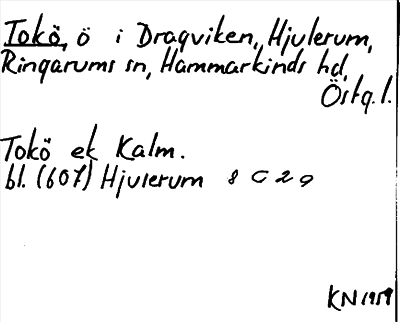 Tokö, ö i Dragviken, Hjulerum,
Ringarums sn, Hammarkinds hd,
Östg. l.
Tokö ek Kalm.
bl. (607) Hjulerum 8 G 2 g
KN 1959